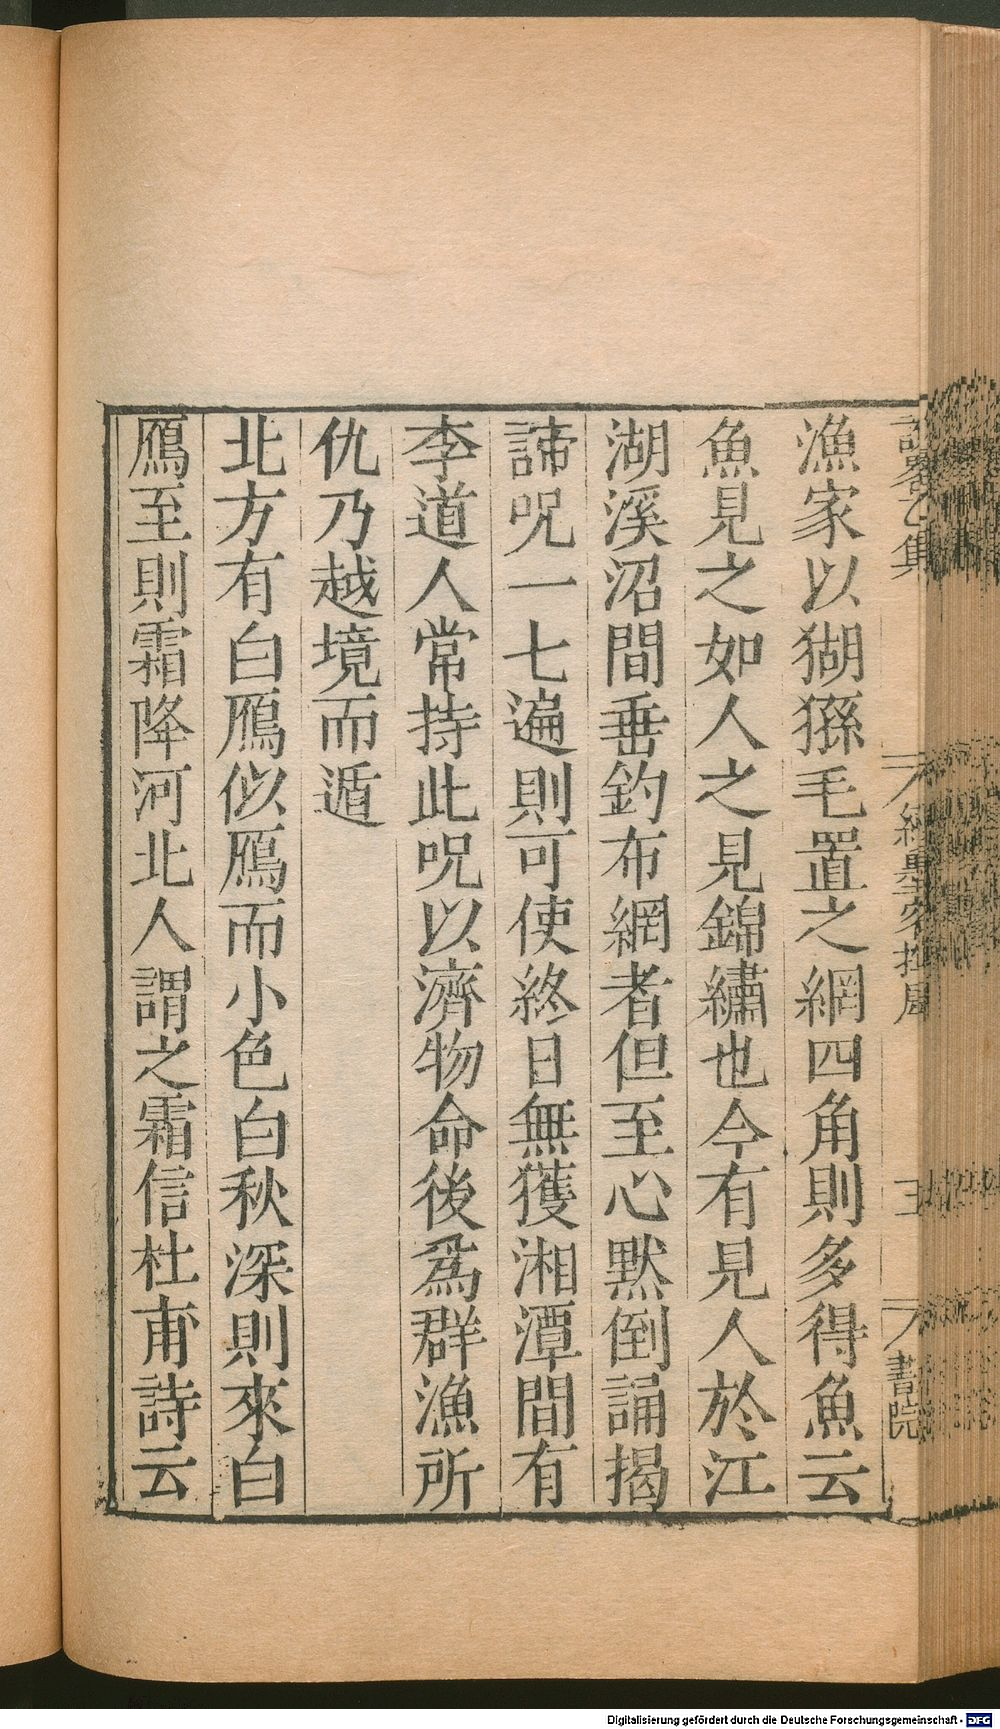 漁家以猢猻毛置之網四角則多得魚云
魚見之如人之見錦繡也今有見人於江
湖溪沼間垂釣布網者但至心默倒誦揭
諦呪一七遍則可使終日無獲湘潭間有
李道人常持此呪以濟物命後爲群漁所
仇乃越境而遁
北方有白鴈似鴈而小色白秋深則來白
鴈至則霜降河北人謂之霜信杜甫詩云
乙集
書院
Digitalisierung gefördert durch die Deutsche Forschungsgemeinschaft - DFG